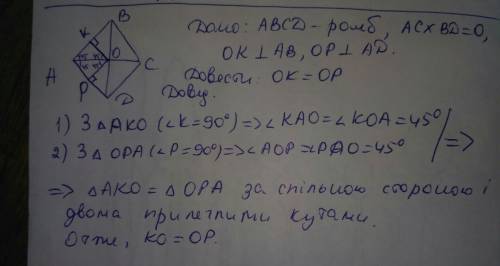 B
K
O
A
C
P
D
Дано: ABCD - ромб, AC×BD=O,
OK⊥AB, OP⊥AD.
Довести: OK=OP
Довед.
1) З △AKO (∠K=90°)=>∠KAO=∠KOA=45°
2) З △OPA (∠P=90°)=>∠AOP=∠PAO=45°
=>
=> △AKO=△OPA за спільною стороною і
двома прилеглими кутами.
Отже, KO=OP.